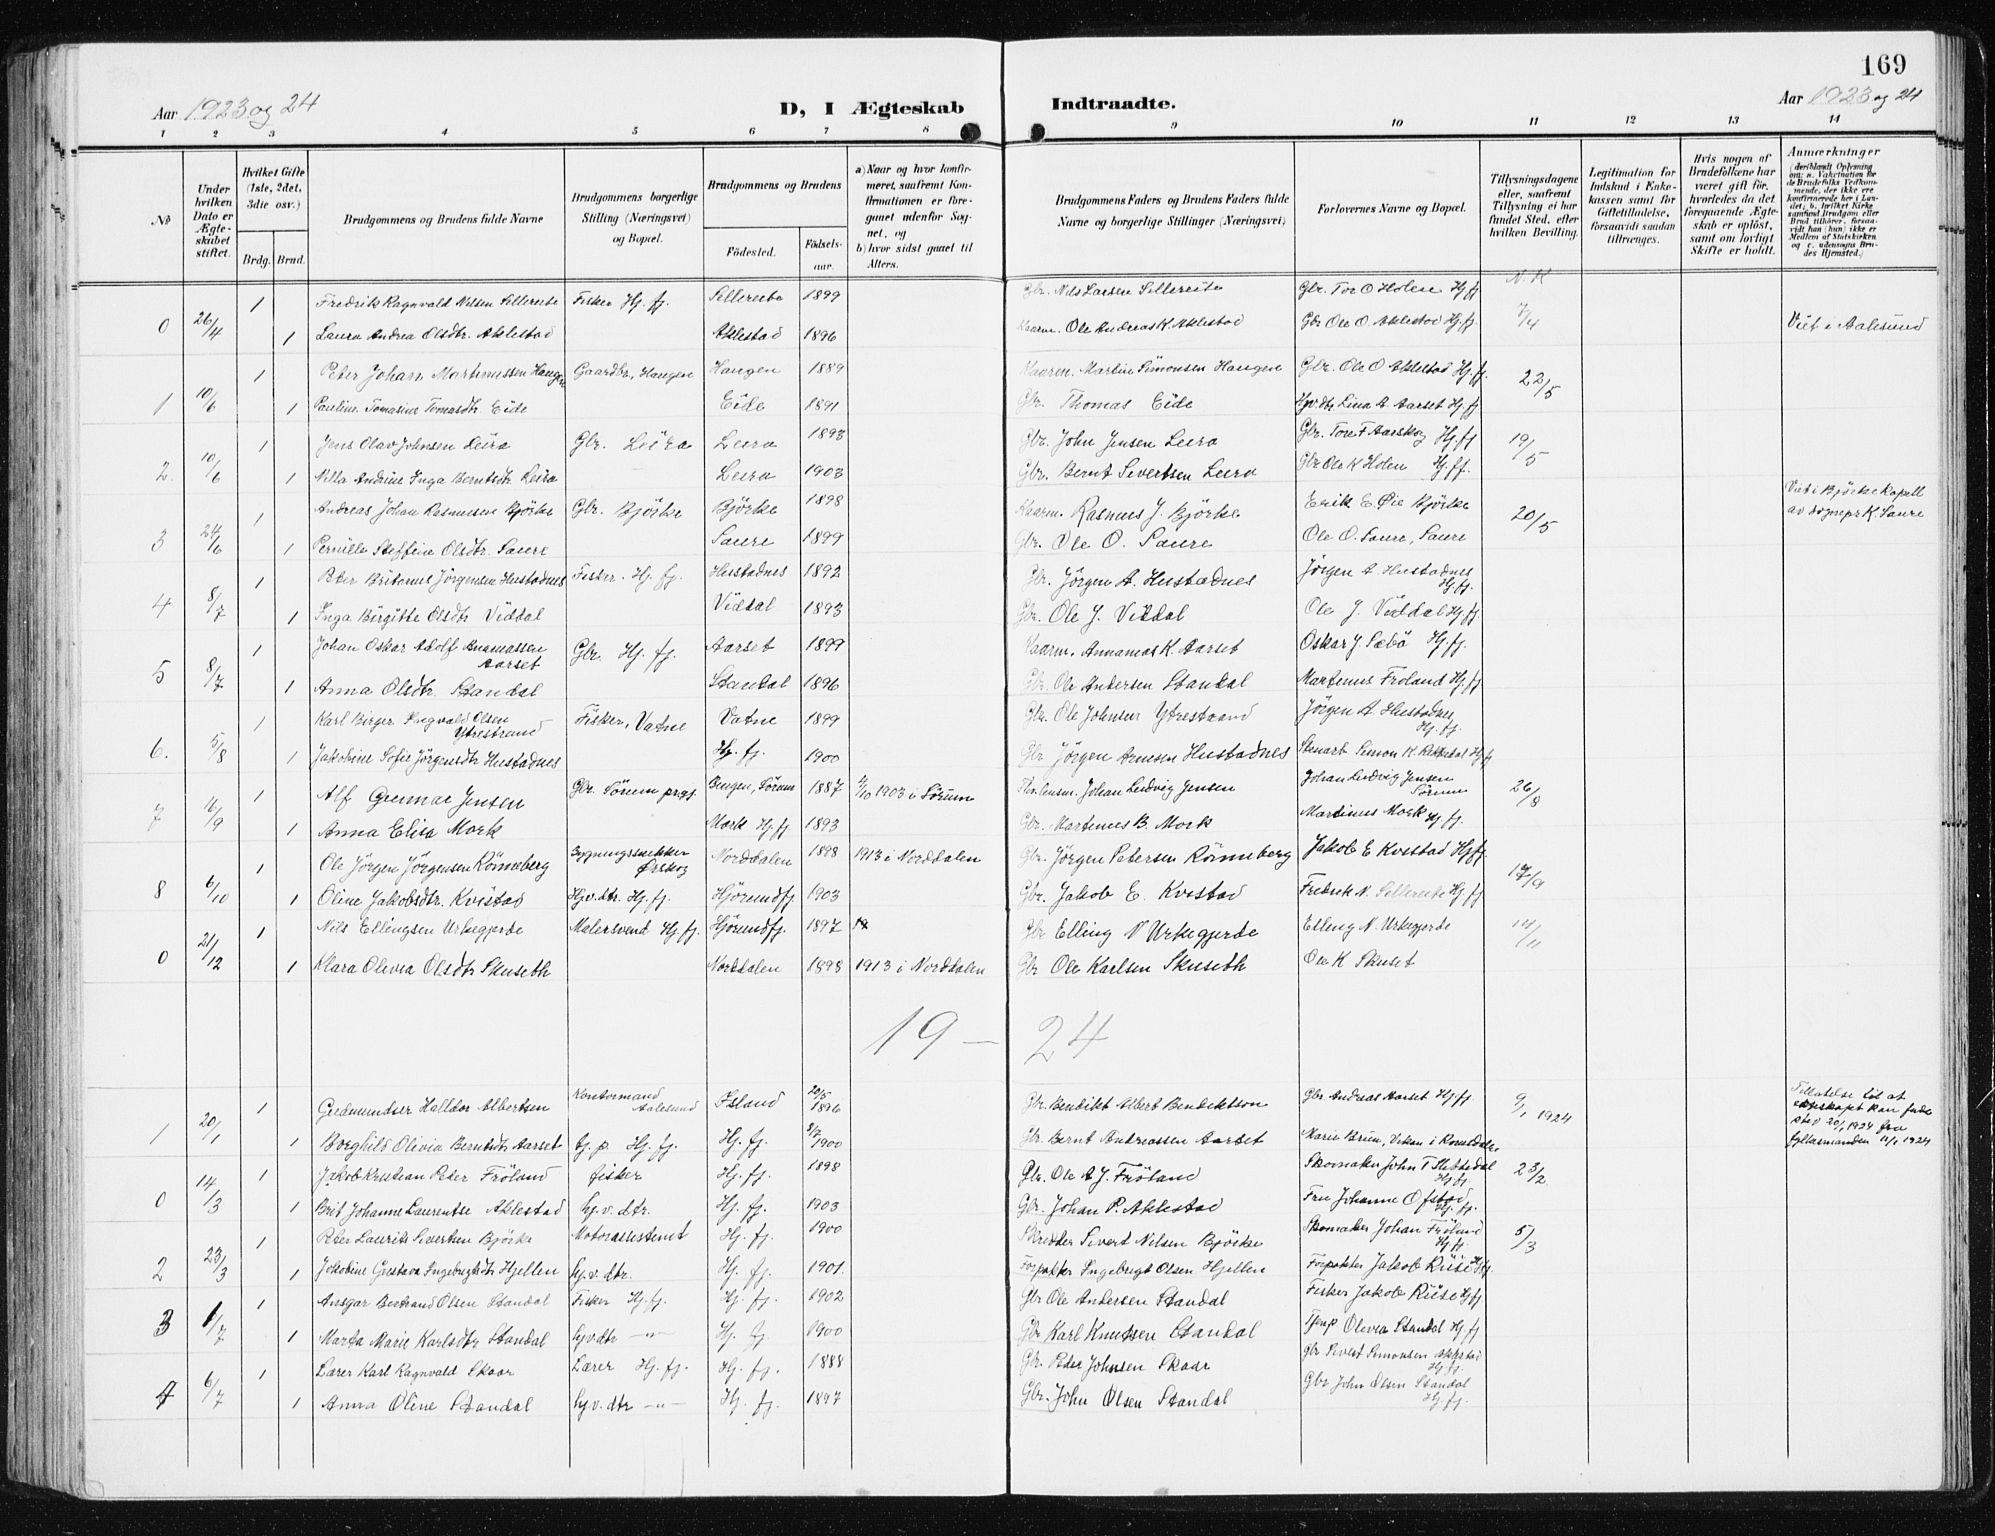 169
Aar 1923 og 24
D, I Ægteskab Indtraadte.
Aar 1923 og 24
1 2 3 4 5 6 7 8 9 10 11 12 13 14
No
Under hvilken Dato er Ægteskabet stiftet.
Hvilket Gifte (1ste, 2det, 3die osv.)
Brdg. Brud.
Brudgommens og Brudens fulde Navne
Brudgommens borgerlige Stilling (Næringsvei) og Bopæl.
Brudgommens og Brudens
Födested. Födselsaar.
a) Naar og hvor konfirmeret, saafremt Konfirmationen er foregaaet udenfor Sognet, og
b) hvor sidst gaaet til Alters.
Brudgommens Faders og Brudens Faders fulde Navne og borgerlige Stillinger (Næringsvei)
Forlovernes Navne og Bopæl.
Tillysningsdagene eller, saafremt Tillysning ei har fundet Sted, efter hvilken Bevilling.
Legitimation for Indskud i Enkekassen samt for Giftetilladelse, forsaavidt saadan tiltrænges.
Hvis nogen af Brudefolkene har været gift för, hvorledes da det foregaaende Ægteskab er oplöst, samt om lovligt Skifte er holdt.
Anmærkninger
N.K
1 Fredrik Ragnvald Nilsen Sellereite Fisker Hj.fj. Sellereite 1899 Gbr. Nils Larsen Sellereite Gbr. Tor O Holen Hj.fj
0 26/4 1 Laura Andrea Olsdtr. Aklestad Aklestad 1896 Kaarm. Ole Andreas K. Aklestad Gbr Ole O. Aklestad Hj.fj. 7/4 Viet i Aalesund
1 Peter Johan Martinussen Haugen Gaardbr., Haugen Haugen 1889 Kaarm. Martin Simonsen Haugen Gbr. Ole O Aklestad Hj.fj.
1 10/6 1 Pauline Tomasine Tomasdtr. Eide Eide 1891 Gbr. Thomas Eide Hjv.dtr Lina A. Aarset Hj.fj 22/5
1 Jens Olav Johnsen Leira Gbr. Leira Leira 1893 Gbr. John Jensen Leira Gbr. Tore F Aarskog Hj.fj
2. 10/6 1 Nilla Andrine Inga Berntsdtr. Leira Leira 1903 Gbr. Bernt Sivertsen Leira Gbr Ole K Holen Hj.fj. 19/5
1 Andreas Johan Rasmussen Björke Gbr. Björke Björke 1898 Kaarm. Rasmus J. Björke Erik E. Øie Björke
3 24/6 1 Pernille Steffine Olsdtr. Saure Saure 1899 Gbr. Ole O. Saure Ole O. Saure, Saure 20/5 Viet i Bjørke Kapell av sognepr K. Saure
1 Peter Britanus Jörgensen Hustadnes Fisker. Hj.fj. Hustadnes 1892 Gbr. Jörgen A. Hustadnes Jörgen A. Hustadnes Hj.fj.
4 8/7 1 Inga Birgitte Olsdtr Viddal Viddal 1893 Gbr. Ole J. Viddal Ole J. Viddal Hj.fj
1 Johan Oskar Adolf Anamassen Aarset Gbr. Hj.fj. Aarset 1899 Kaarm. Annamas K. Aarset Oskar J. Sæbö Hj.fj.
5 8/7 1 Anna Olsdtr. Standal Standal 1896 Gbr. Ole Andersen Standal Martinus Frøland Hj.fj
1 Karl Birger Ingvald Olsen Ytrestrand Fisker, Vatne Vatne 1899 Gbr. Ole Johnsen Ytrestrand Jörgen A. Hustadnes Hj.fj.
6. 5/8 1 Jakobine Sofie Jörgensdtr Hustadnes Hj.fj. 1900 Gbr Jörgen Arnesen Hustadnes Simon K. Rekkedal Hj.fj
1 Alf Gunnar Jensen Gbr. Sörum prgj. Bingen, Sörum 1887 4/10 1903 i Sörum Johan Ludvig Jensen Johan Ludvig Jensen Sörum
7 16/9 1 Anna Elisa Mork Mork Hj.fj. 1893 Gbr. Martinus B. Mork Martinus Mork Hj.fj. 26/8
1 Ole Jörgen Jörgensen Rönneberg Bygningssnekker Ørskog Norddalen 1898 1913 i Norddalen Gbr. Jörgen Petersen Rönneberg Jakob E Kvistad Hj.fj.
8 6/10 1 Oline Jakobsdtr. Kvistad Hjv.dtr. Hj.fj. Hjörundfj. 1903 Gbr. Jakob E. Kvistad Fredrik N. Sellereite Hj.fj 17/9
1 Nils Ellingsen Urkegjerde Malersvend Hj.fj. Hjörundfj. 1897 Gbr Elling N Urkegjerde Elling N. Urkegjerde
0 21/12 1 Klara Olivia Olsdtr Skuseth Norddalen 1898 1913 i Norddalen Gbr Ole Karlsen Skuseth Ole K Skuset 14/11
19 — 24
1 Gudmundser Halldor Albertsen Kontormand Aalesund Island 20/5 1896 Gbr. Bendikt Albert Bendiktson Gbr. Andreas Aarset Hj.fj.
1 20/1 1 Borghild Olivia Berntsdtr Aarset Hj.fj. Hj.fj. 8/7 1900 Gbr. Bernt Andreassen Aarset Marie Brun, i Romsdalen 9/1 1924 Tillatelse til at ekteskapet kan finde sted 20/1 1924 fra fylkesmanden 11/1 1924
1 Jakob Kristian Peter Fröland fisker Hj.fj. 1898 Gbr. Ole A J. Fröland Skomaker John T Slettedal Hj.fj.
0 14/3 1 Brit Johanne Laurentse Aklestad hj.v.dtr. Hj.fj. 1903 Gbr. Johan P. Aklestad Fru Johanne Ofstad Hj.fj. 23/2
1 Peter Laurits Sivertsen Bjørke Motorassistent Hj.fj. 1900 Skredder Sivert Nilsen Bjørke Skomaker Johan Fröland Hj.fj.
2 23/3 1 Jakobine Gustava Ingebrigtsdtr Hjellen hj.v.dtr. Hj.fj. 1901. Forpakter Ingebrigt Olsen Hjellen Forpakter Jakob Riise Hj.fj. 5/3
1 Ansgar Bertrand Olsen Standal Fisker Hj.fj. Hj.fj. 1902 Gbr Ole Andersen Standal Fisker Jakob Riise Hj.fj
3 1/7 1 Marta Marie Karlsdtr Standal hjv.dtr —"— Hj.fj. 1900 Gbr Karl Knutsen Standal Tjenp Olivia Standal Hj.fj
1 Lærer Karl Ragnvald Skaar Lærer Hj.fj. Hj.fj. 1888 Gbr. Peter Johnsen Skaar Gbr Sivert Simonsen Aklestad Hj.fj.
4 6/7 1 Anna Oline Standal hj.v.dtr —"— Hj.fj. 1897 Gbr. John Olsen Standal Gbr John Olsen Standal Hj.fj.